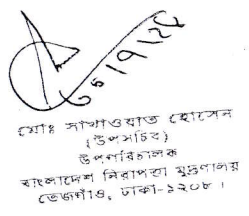 ৩১/৭/২৫
মোঃ সাখাওয়াত হোসেন
(উপসচিব)
উপপরিচালক
বাংলাদেশ নিরাপত্তা মুদ্রণালয়
তেজগাঁও, ঢাকা-১২০৮।